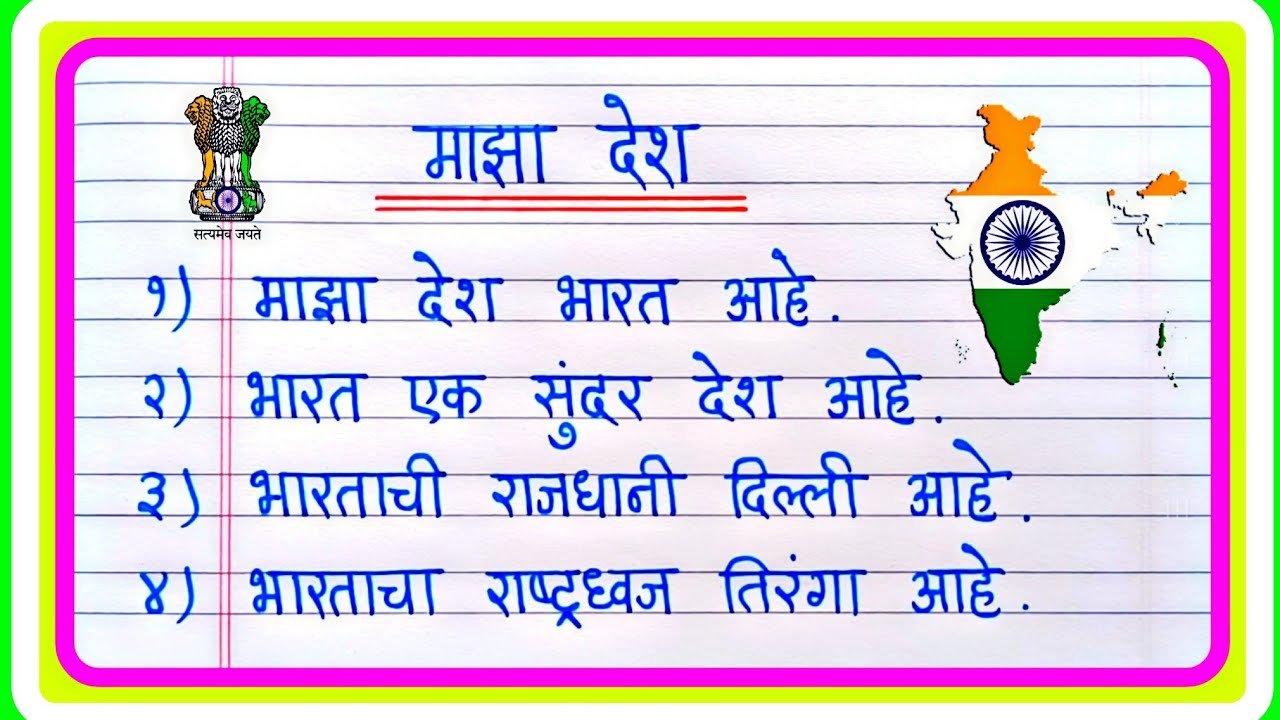 माझा देश
सत्यमेव जयते
१) माझा देश भारत आहे.
२) भारत एक सुंदर देश आहे.
३) भारताची राजधानी दिल्ली आहे.
४) भारताचा राष्ट्रध्वज तिरंगा आहे.